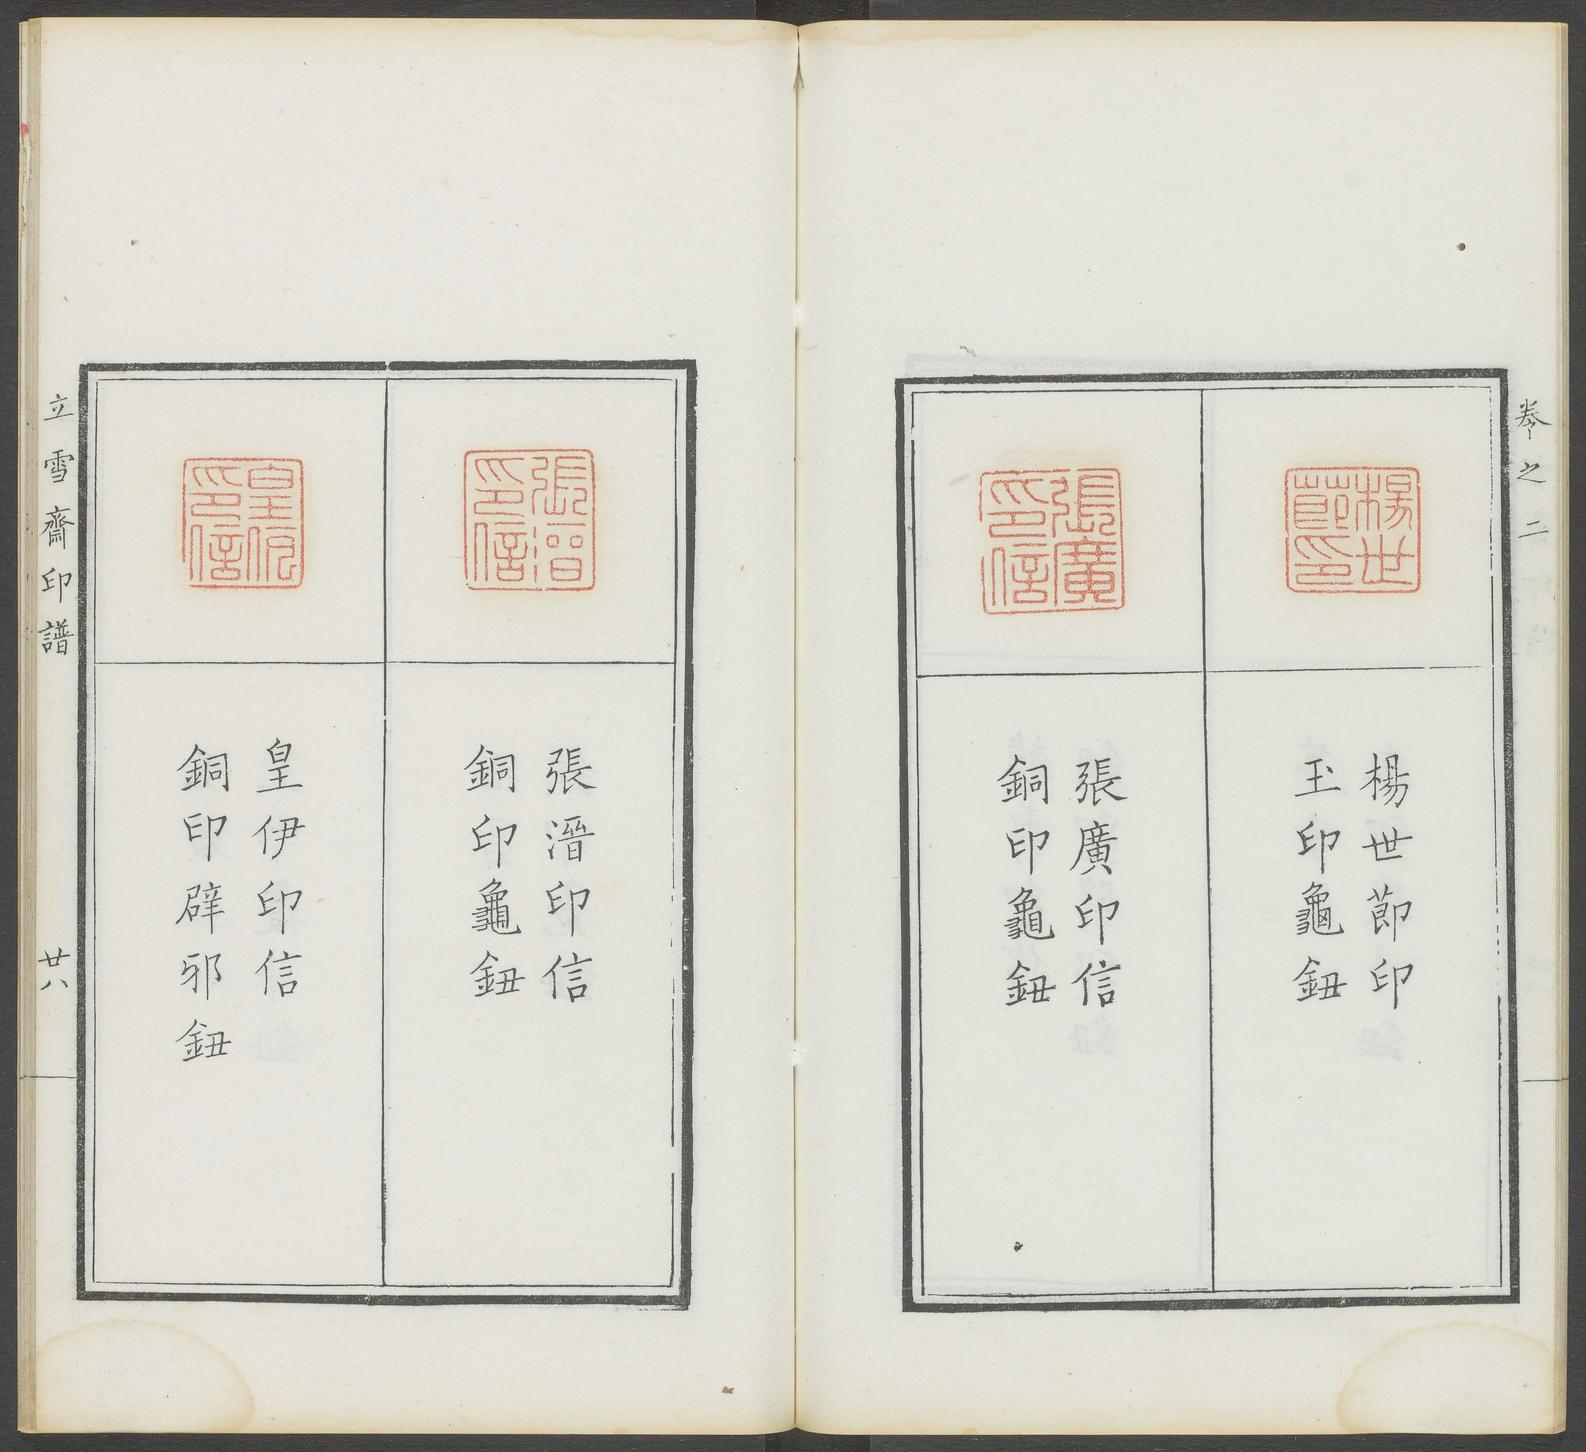 卷之二
楊世節印
楊世莭印
玉印龜鈕
張廣印信
張廣印信
銅印龜鈕
張溍印信
張溍印信
銅印龜鈕
皇伊印信
皇伊印信
銅印辟邪鈕
立雪齋印譜
廿八